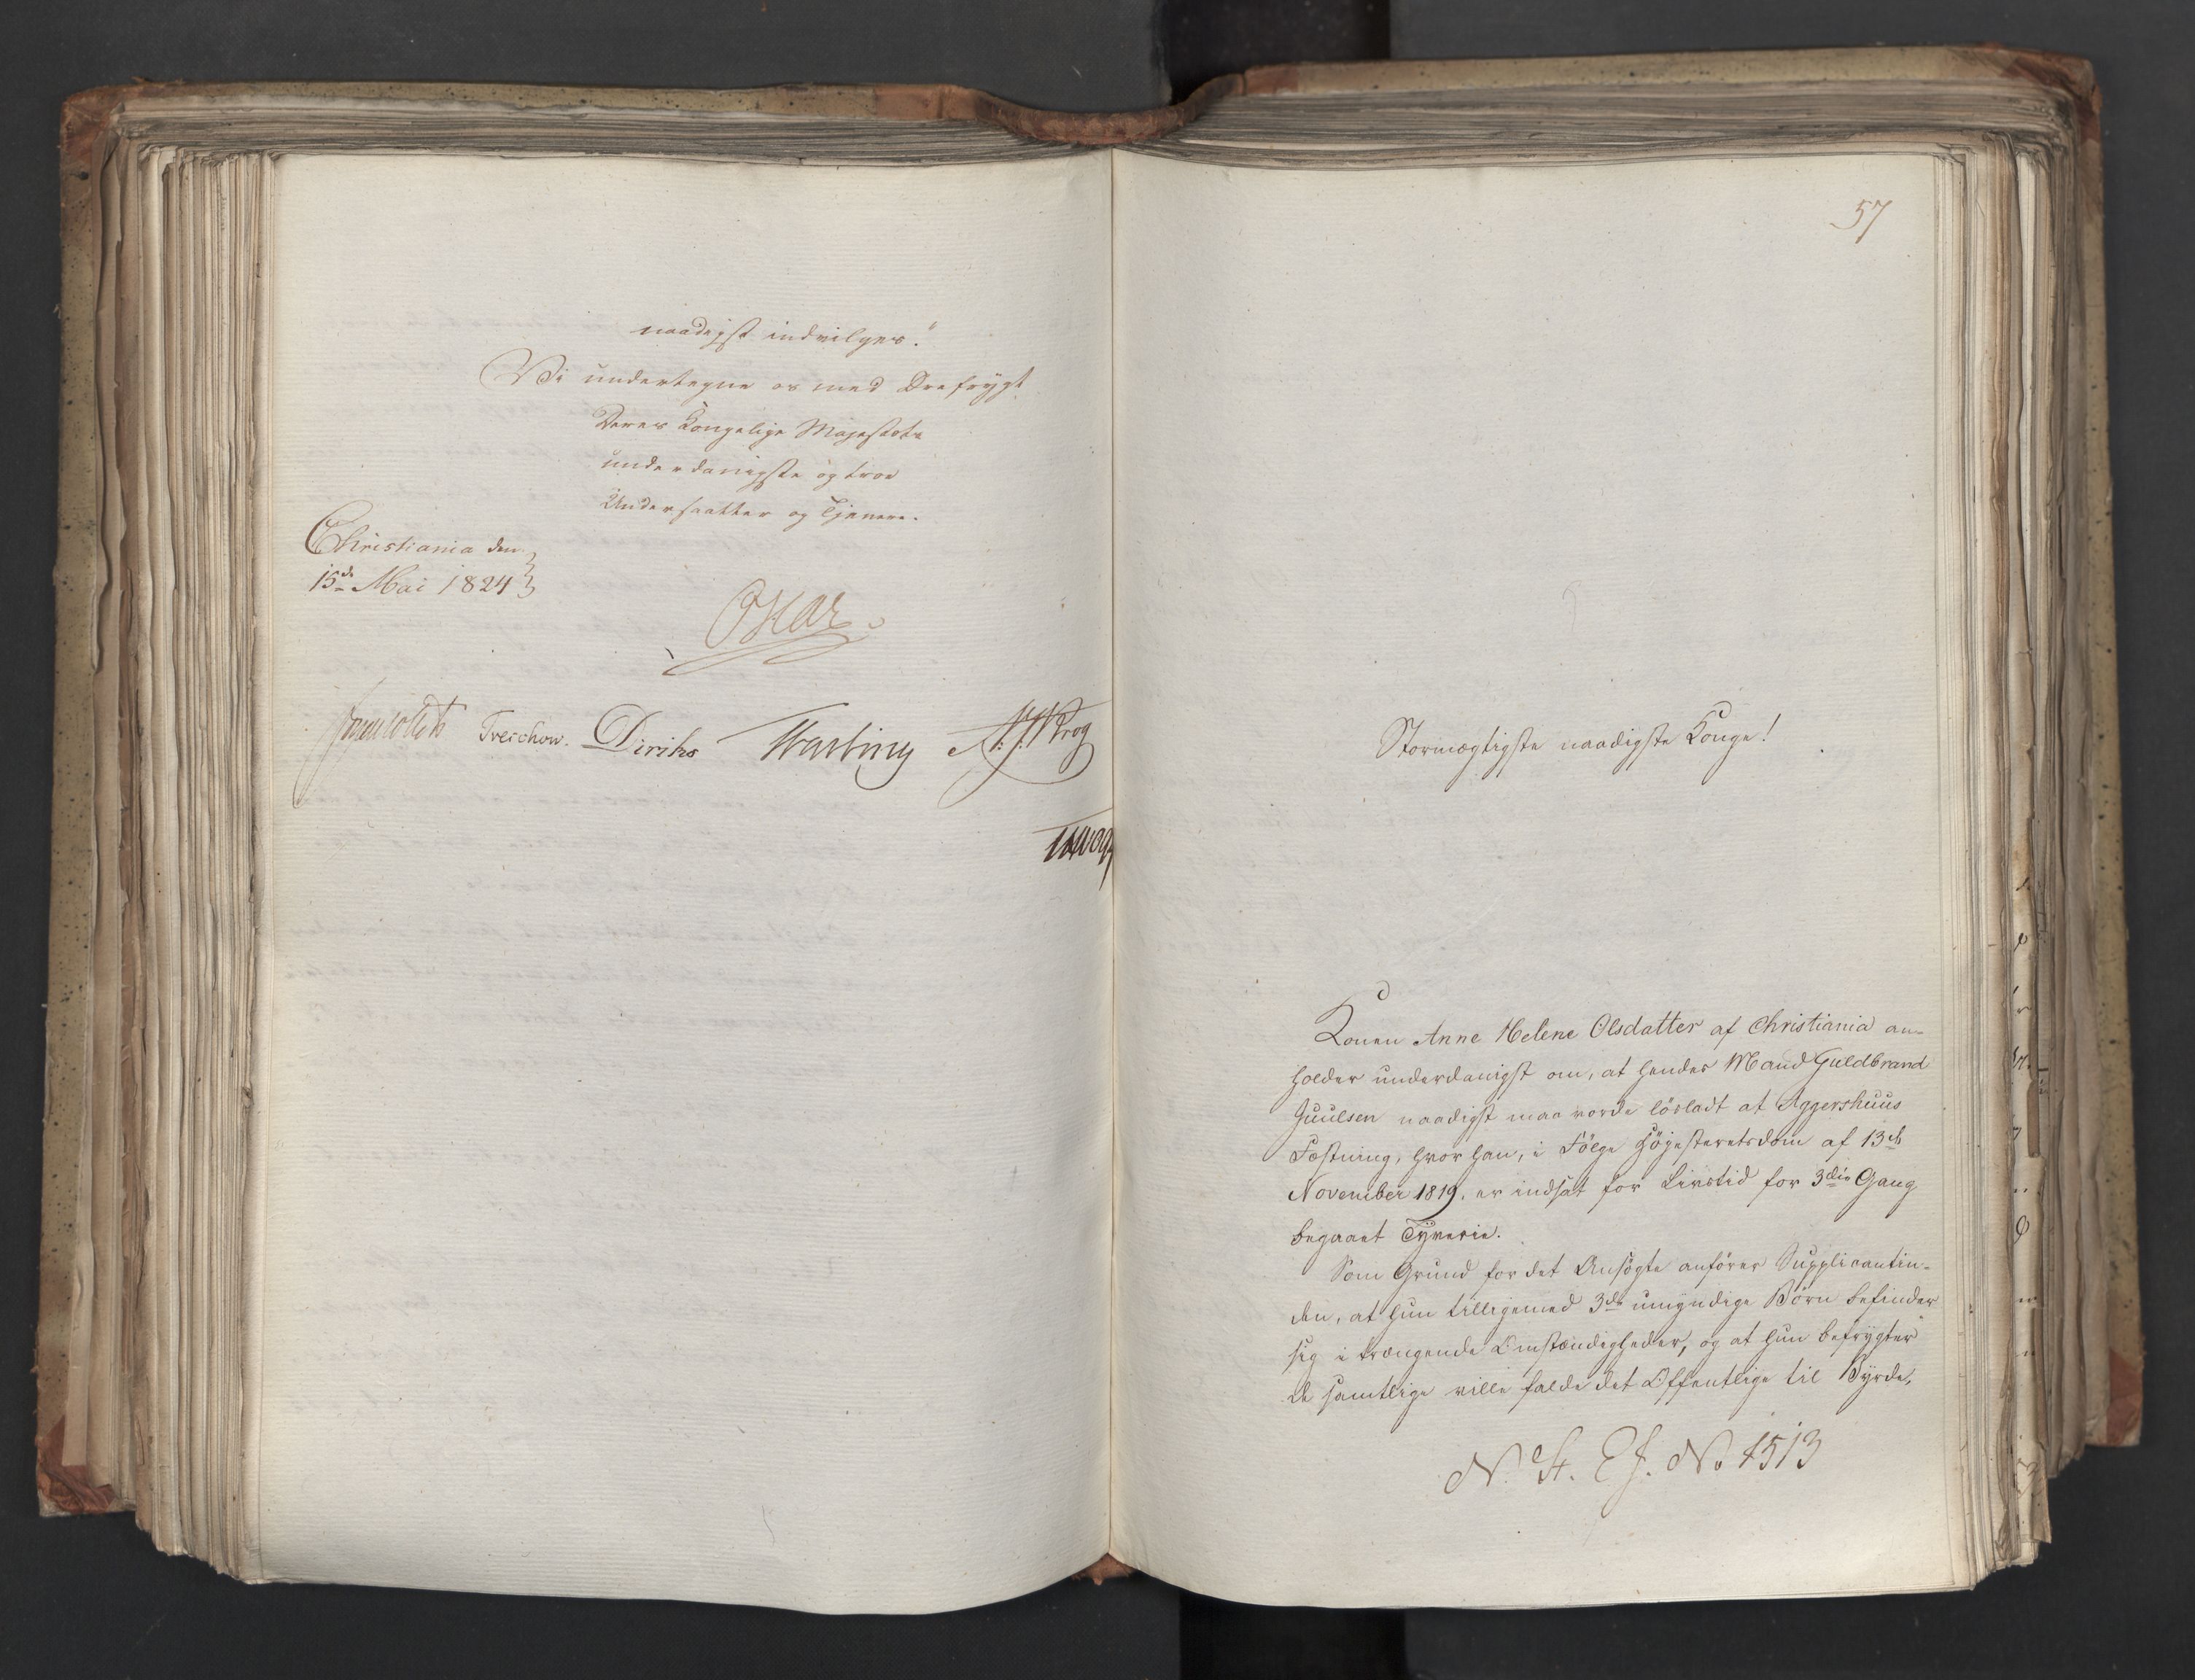 naadigst indvilges."
Vi undertegne os med Ærefrygt
Deres Kongelige Majestæts
underdanigste og troe
Undersaatter og Tjenere.
Christiania den
15de Mai 1824
Oskar
Jonas Collett Treschow. Diriks Hartving
57
Stormægtigste naadigste Konge!
Konen Anne Helene Olsdatter af Christiania an-
holder underdanigst om, at hendes Mand Guldbrand
Juulsen naadigst maa vorde lösladt at Aggershuus
Fæstning, hvor han, i Fölge Höjesteretsdom af 13de
November 1819. er indsat for Livstid for 3die Gang
begaaet Tyverie.
Som Grund for det Ansögte anförer Supplicantin-
den, at hun tilligemed 3de umyndige Börn befinder
sig i trængende Omstændigheder, og at hun befrygter
de samtlige ville falde det Offentlige til Byrde,
N. St. Ex. No 1513